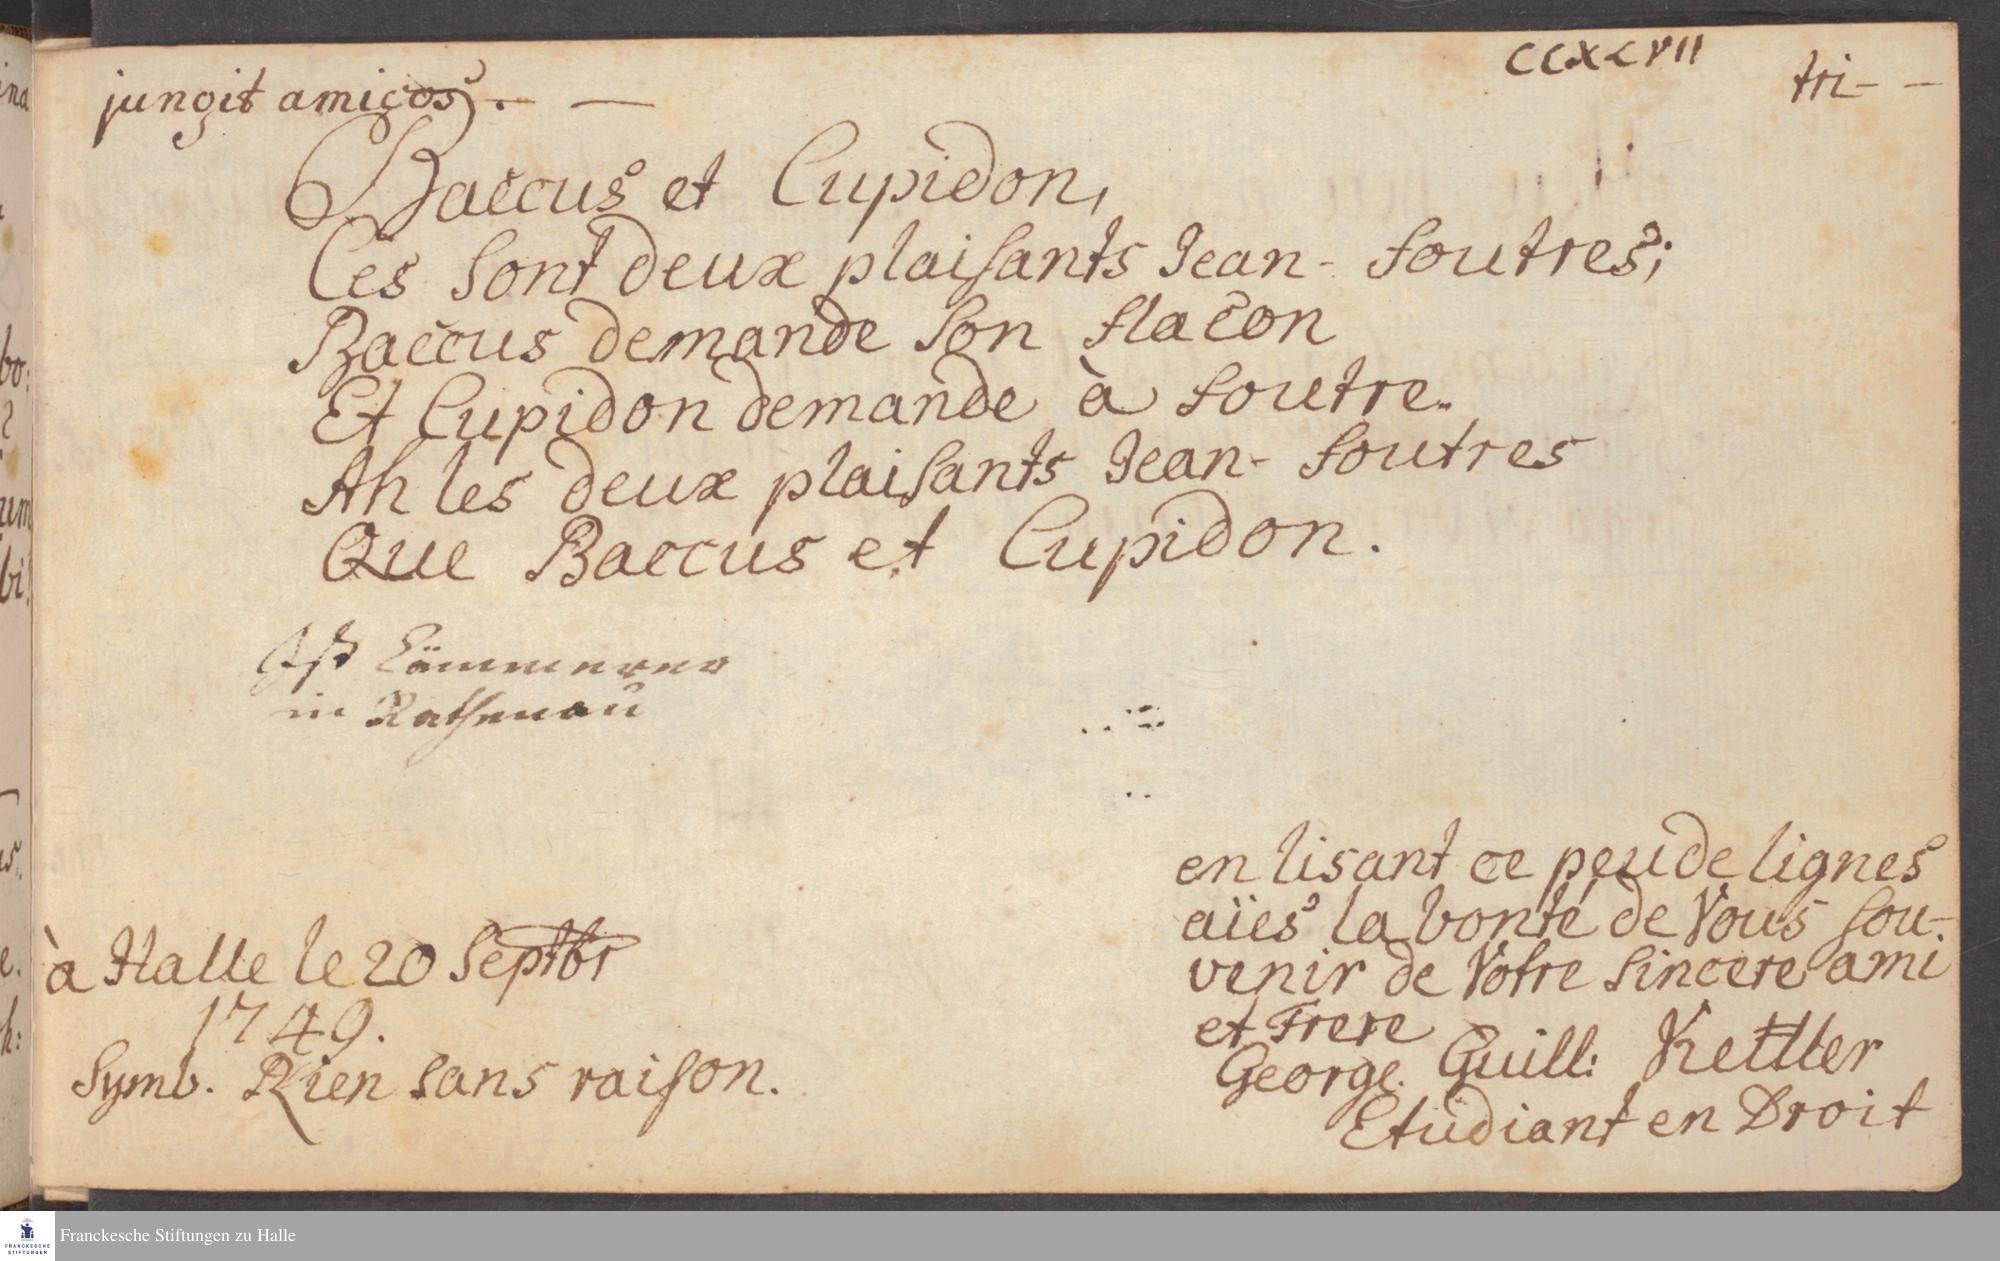 jungit amicos. —
CCXCVII
tri- -
Baccus et Cupidon,
Ces sont deux plaisants Jean- foutres;
Baccus demande son flacon
Et Cupidon demande à foutre..
Ah les deux plaisants Jean- foutres
Que Baccus et Cupidon.
Ist Cämmerer
in Rathenau
en lisant ce peu de lignes
aïes la bonté de Vous sou-
venir de Votre sincere ami
et Frere
George Guill: Kettler
Etudiant en Droit
à Halle le 20 Septbr
1749.
Symb. Rien sans raison.
Franckesche Stiftungen zu Halle
FRANCKESCHE
STIFTUNGEN